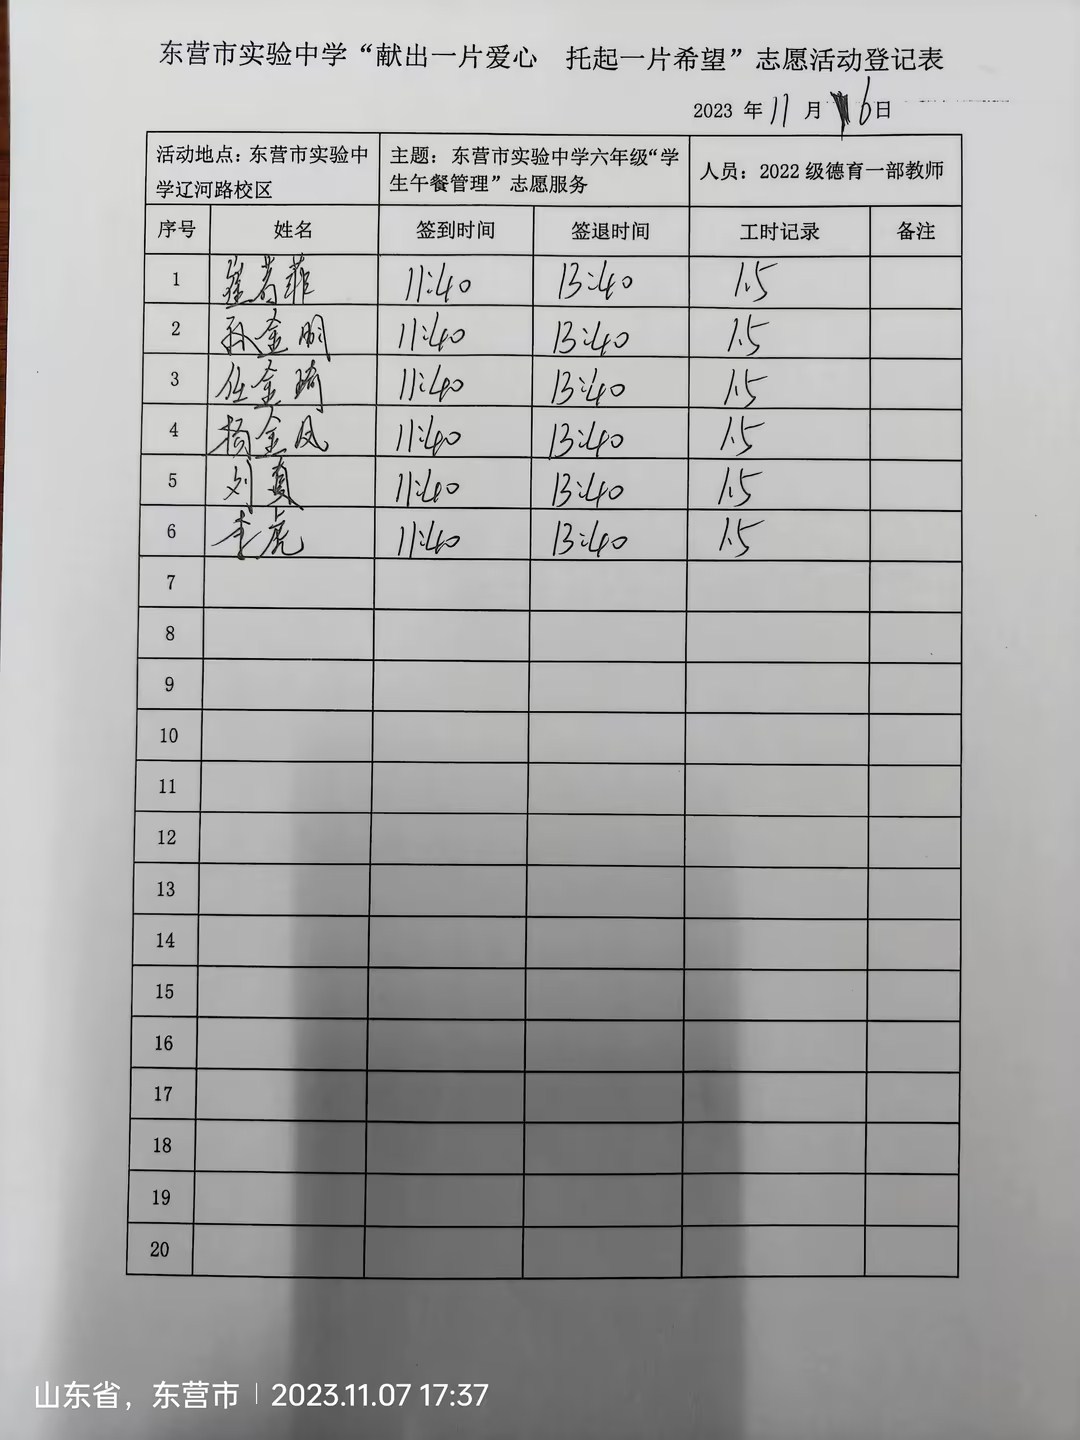 东营市实验中学“献出一片爱心 托起一片希望”志愿活动登记表
2023 年 11 月 6日
活动地点：东营市实验中学辽河路校区 主题：东营市实验中学六年级“学生午餐管理”志愿服务 人员：2022 级德育一部教师
序号 姓名 签到时间 签退时间 工时记录 备注
1 菲 11:40 13:40 1.5
2 孙金明 11:40 13:40 1.5
3 任金琦 11:40 13:40 1.5
4 杨金凤 11:40 13:40 1.5
5 刘 11:40 13:40 1.5
6 李虎 11:40 13:40 1.5
7
8
9
10
11
12
13
14
15
16
17
18
19
20
山东省，东营市 | 2023.11.07 17:37